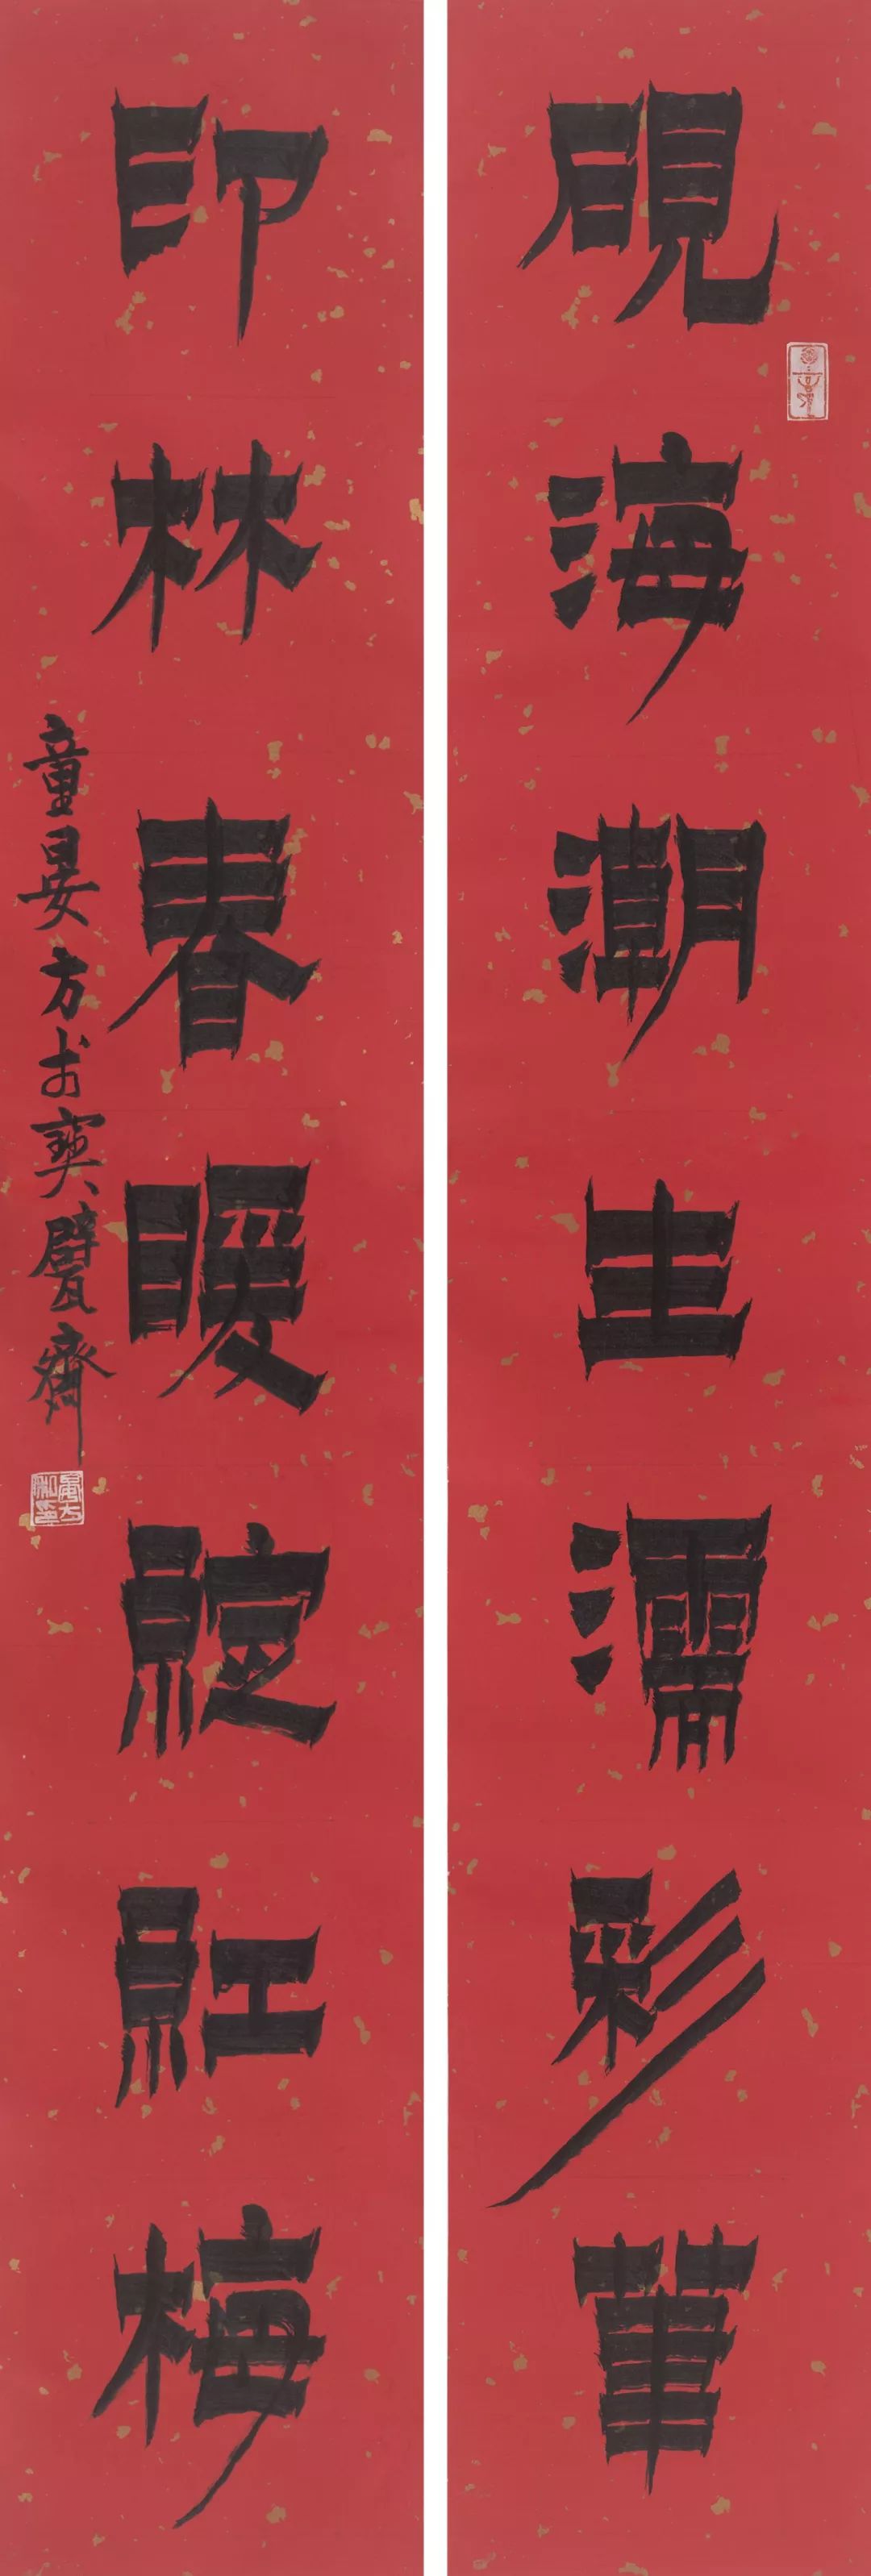 硯海潮生濡彩筆
印林春暖綻紅梅
童晏方书寶甓齋